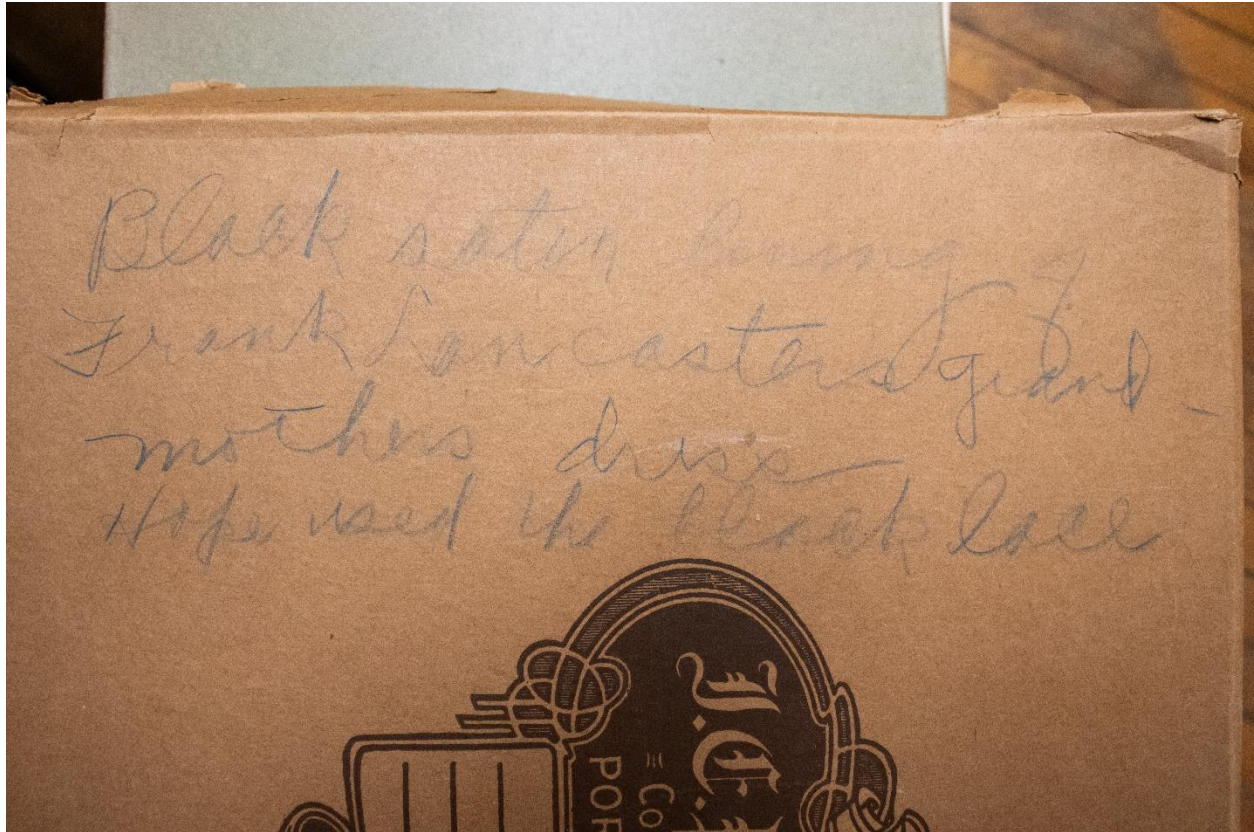 Black satin lining of
Frank Lancasters grand-
mothers dress
Hope used the black lace
J.C.
Co
POR